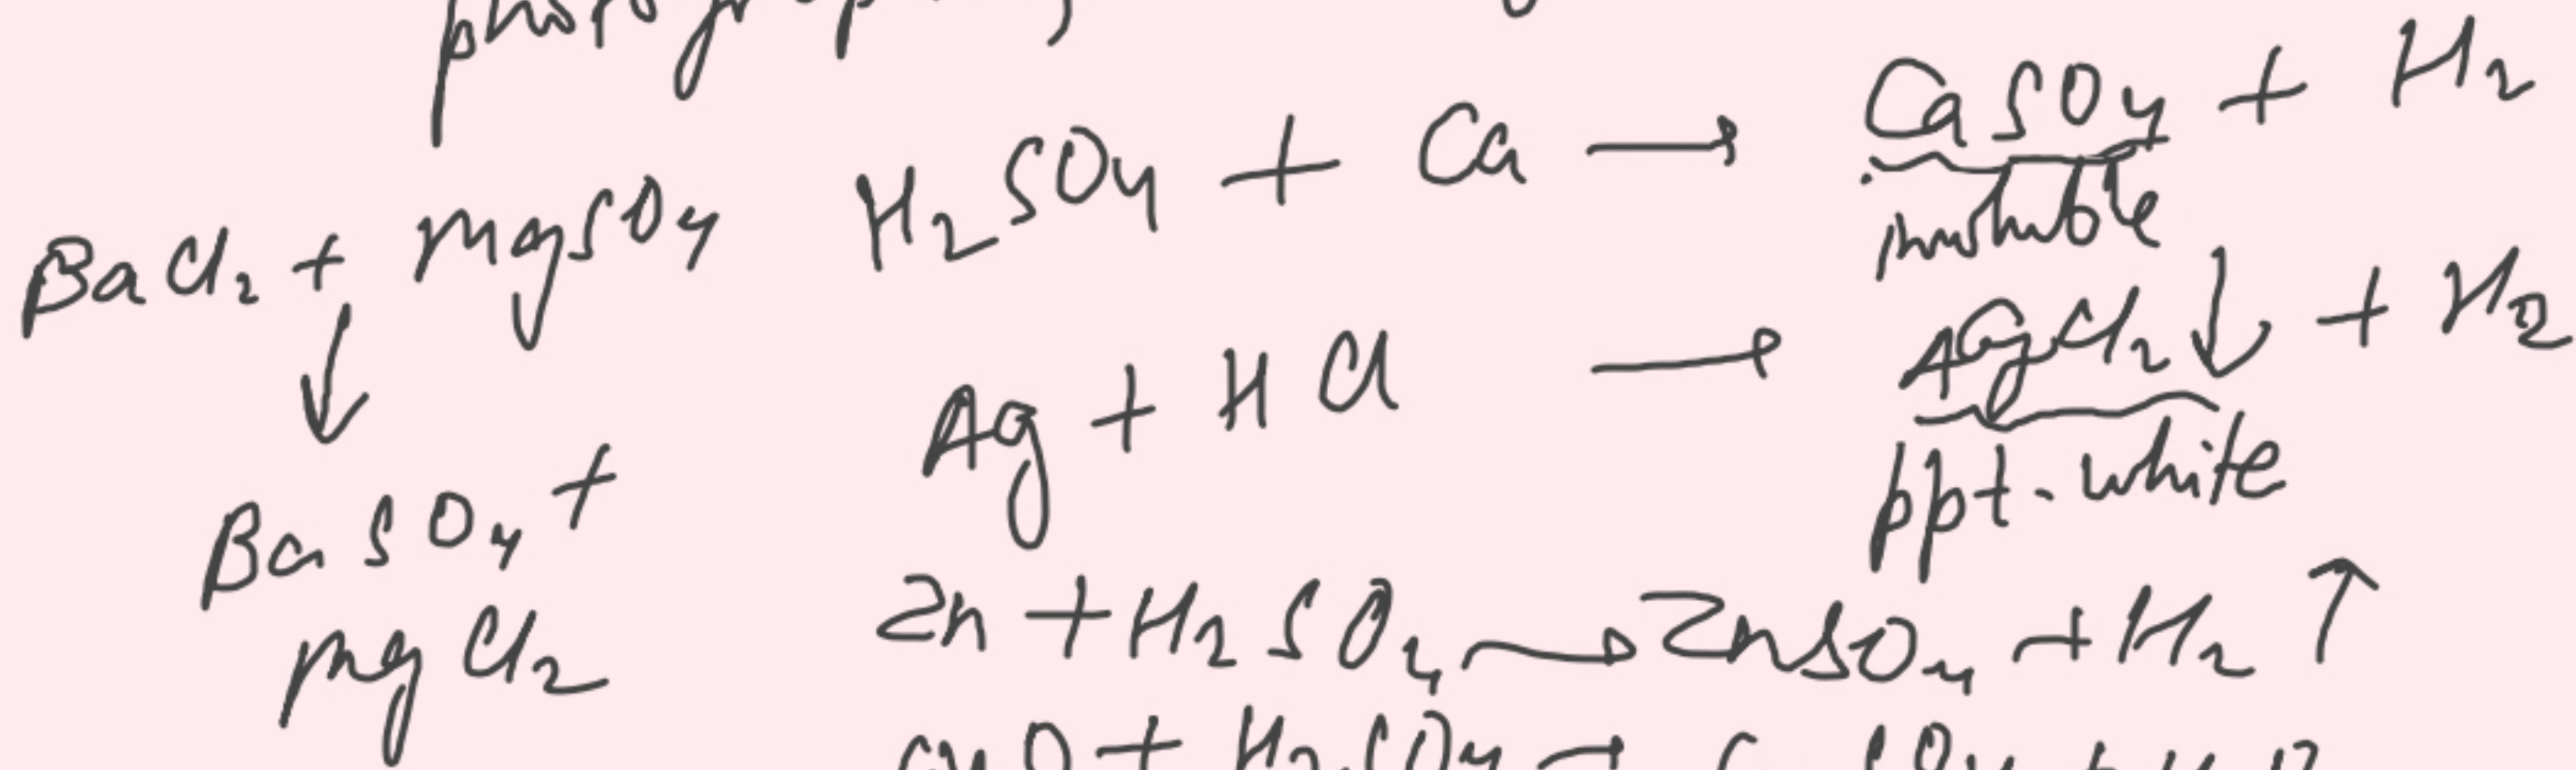 H₂SO₄ + Ca → CaSO₄ + H₂
insoluble
BaCl₂ + MgSO₄
↓
BaSO₄ +
MgCl₂
Ag + HCl → AgCl₂ ↓ + H₂
ppt. white
Zn + H₂SO₄ → ZnSO₄ + H₂ ↑